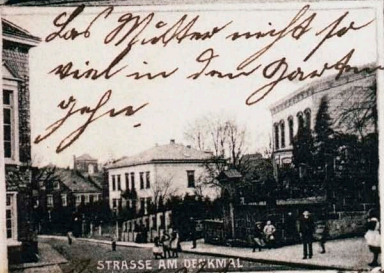 Las Mutter nicht so
viel in den Garten
gehn.
STRASSE AM DENKMAL